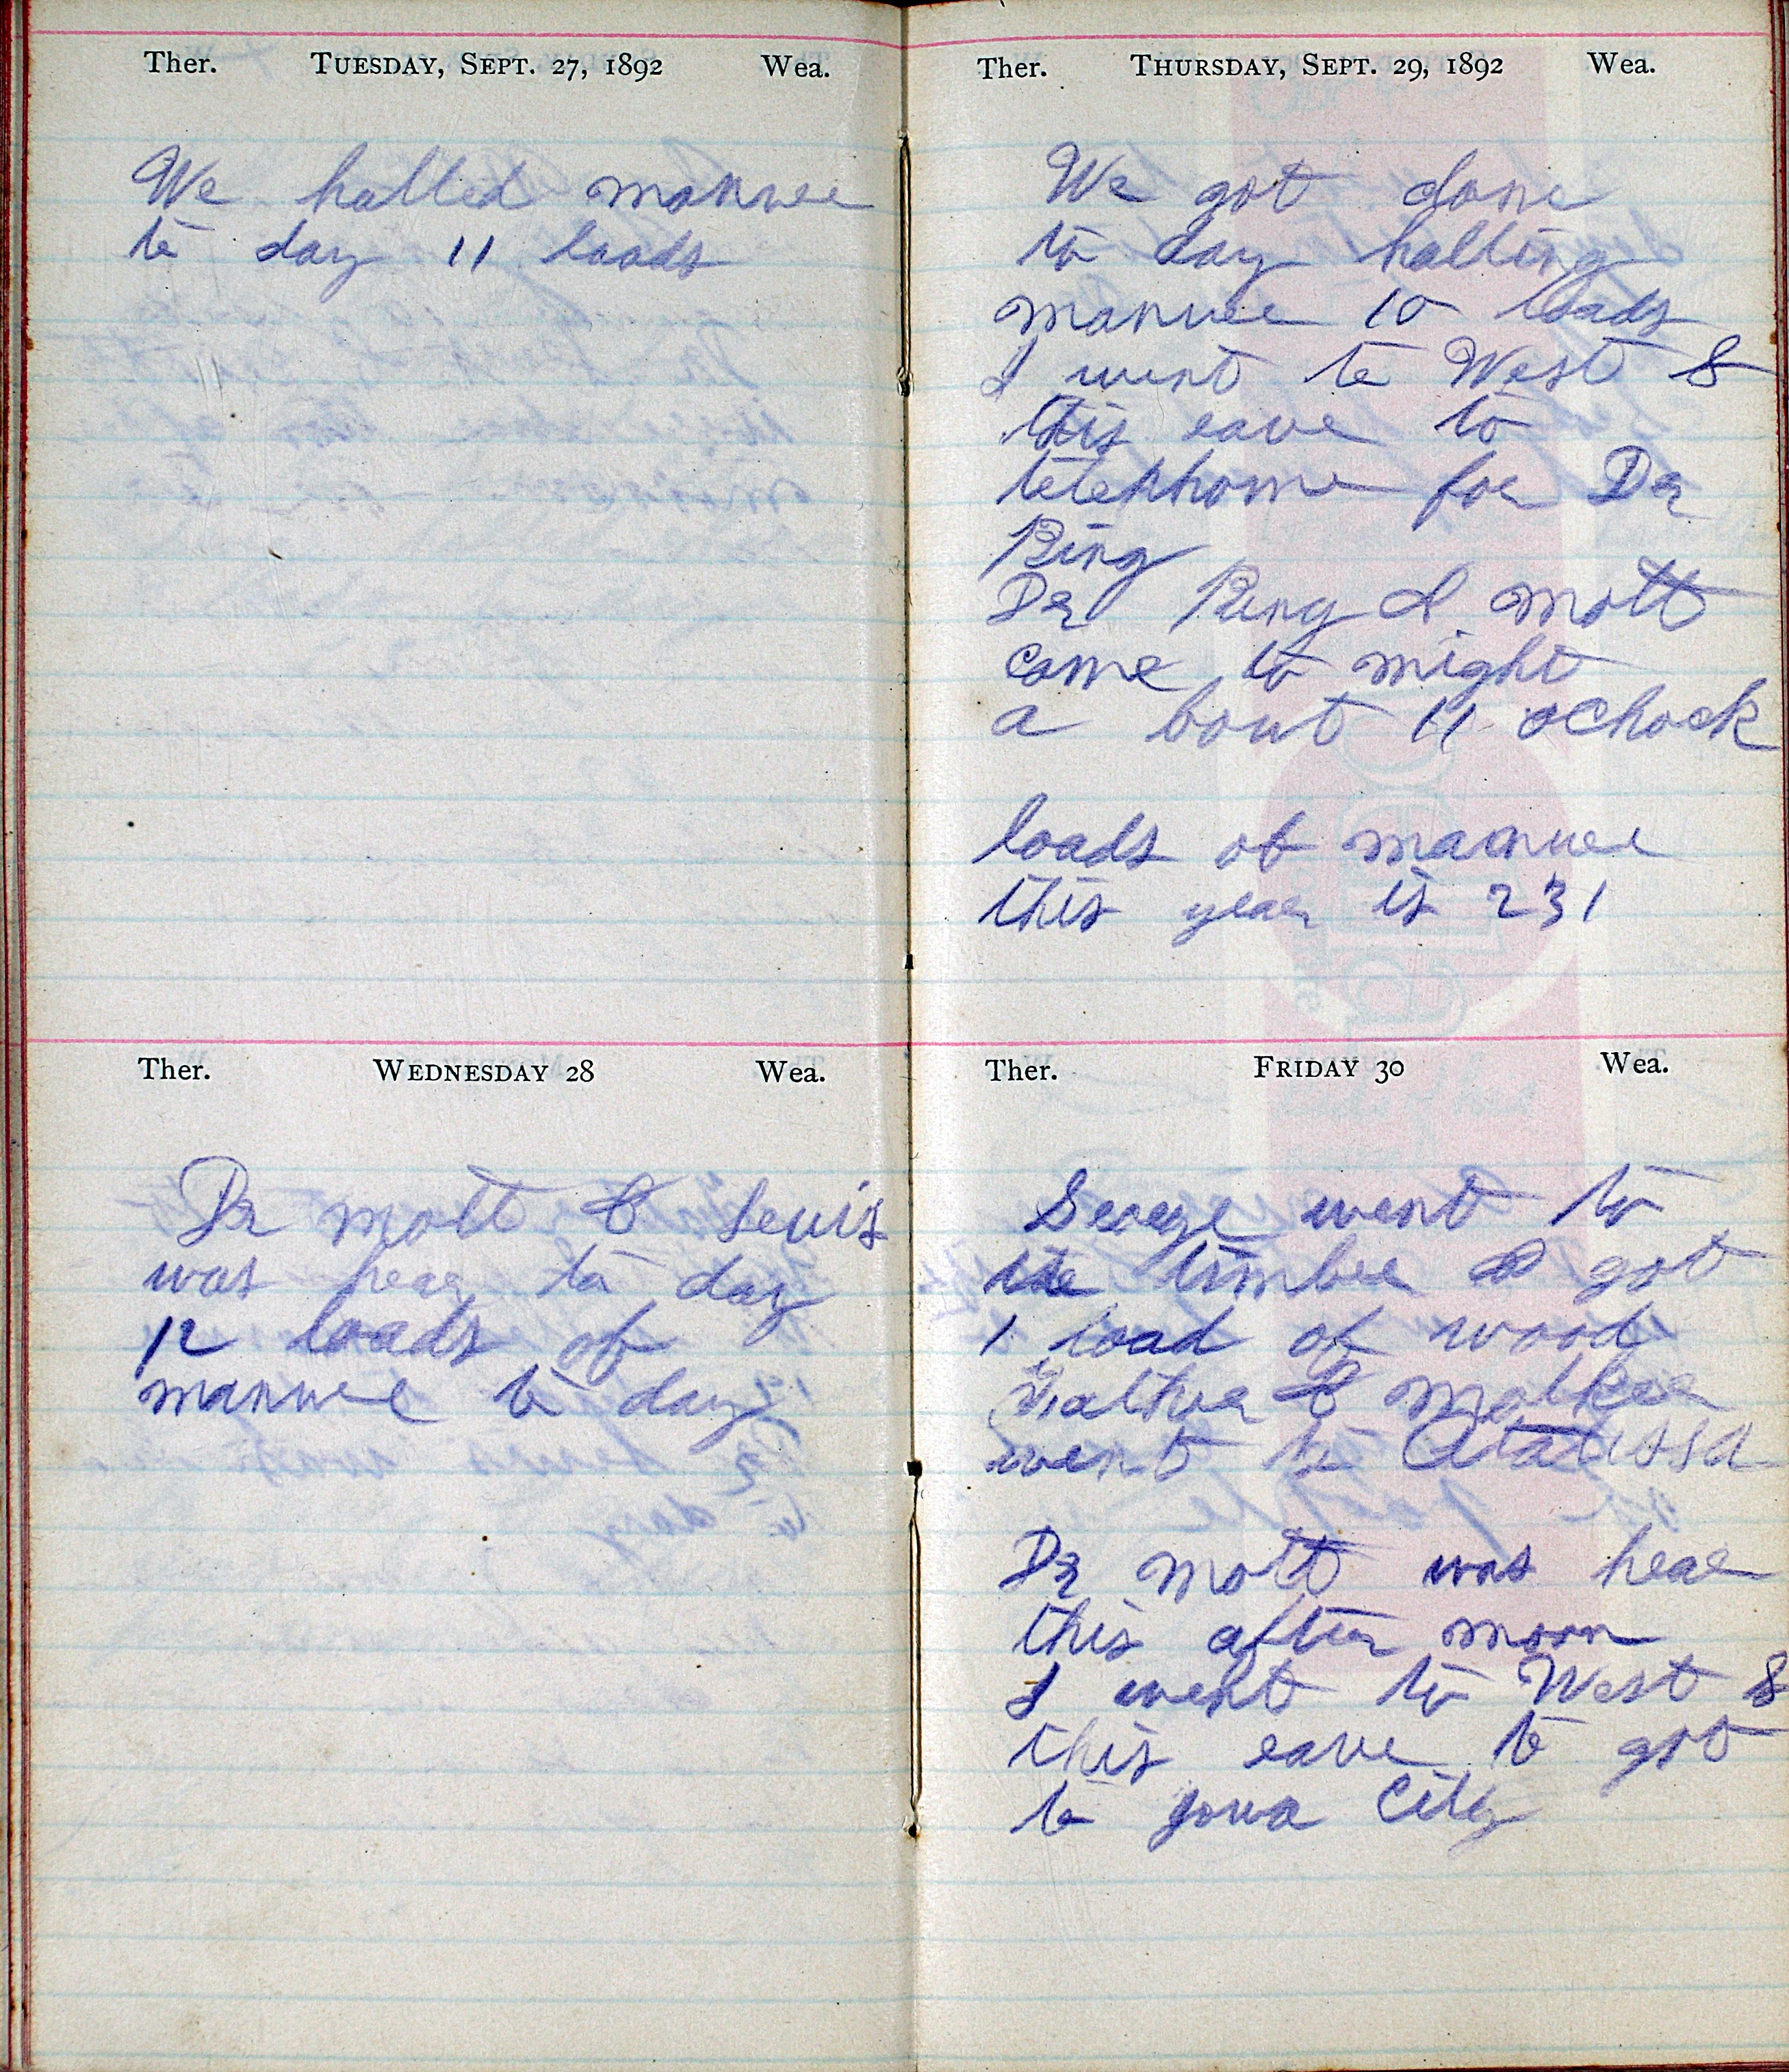 Ther. TUESDAY, SEPT. 27, 1892 Wea.
We halled manuer
to day 11 loads
Ther. WEDNESDAY 28 Wea.
Dr Mott & Lewis
was hear to day
12 loads of
manure to day
Ther. THURSDAY, SEPT. 29, 1892 Wea.
We got done
to day halling
manuer 10 loads
I went to West &
this eave to
telephone for Dr
Ring
Dr Ring & Mott
come to night
a bout 11 oclock
loads of manuer
this year is 231
Ther. FRIDAY 30 Wea.
George went to
the timber & got
1 load of wood
&
went to Atalissa
Dr Mott was hear
this after noon
I went to West &
this eave to got
to Iowa City